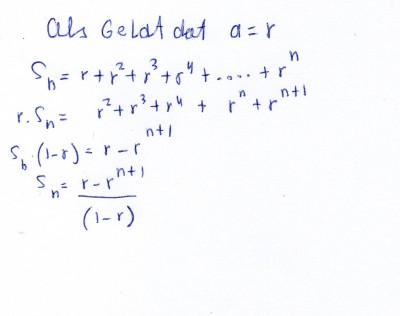 Als Geldt dat a=r
Sₙ = r+r²+r³+r⁴+.....+rⁿ
r.Sₙ = r²+r³+r⁴ + rⁿ+rⁿ⁺¹
Sₙ.(1-r) = r-rⁿ⁺¹
Sₙ = r-rⁿ⁺¹
(1-r)